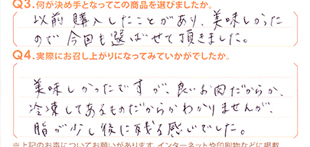 Q3.何が決め手となってこの商品を選びましたか。
以前購入したことがあり、美味しかった
ので今回も選ばせて頂きました。
Q4.実際にお召し上がりになってみていかがでしたか。
美味しかったですが、良いお肉だからか、
冷凍してあるものだからかわかりませんが、
脂が少し後に残る感じでした。
※上記のお声についてお願いがあります。インターネットや印刷物などに掲載